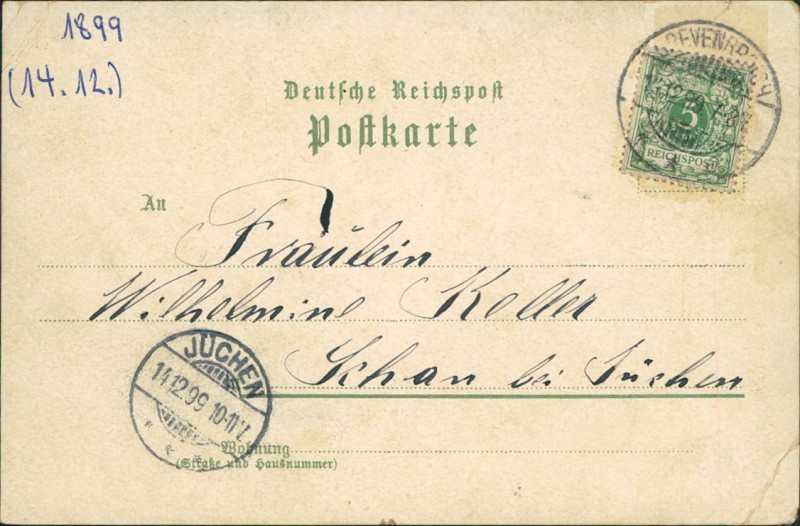 1899
(14. 12.)
Deutsche Reichspost
Postkarte
5
REICHSPOST
An
Fräulein
Wilhelmine Koller
Schan bei Jüchen
JÜCHEN
14.12.99 10-11V.
Wohnung
(Straße und Hausnummer)